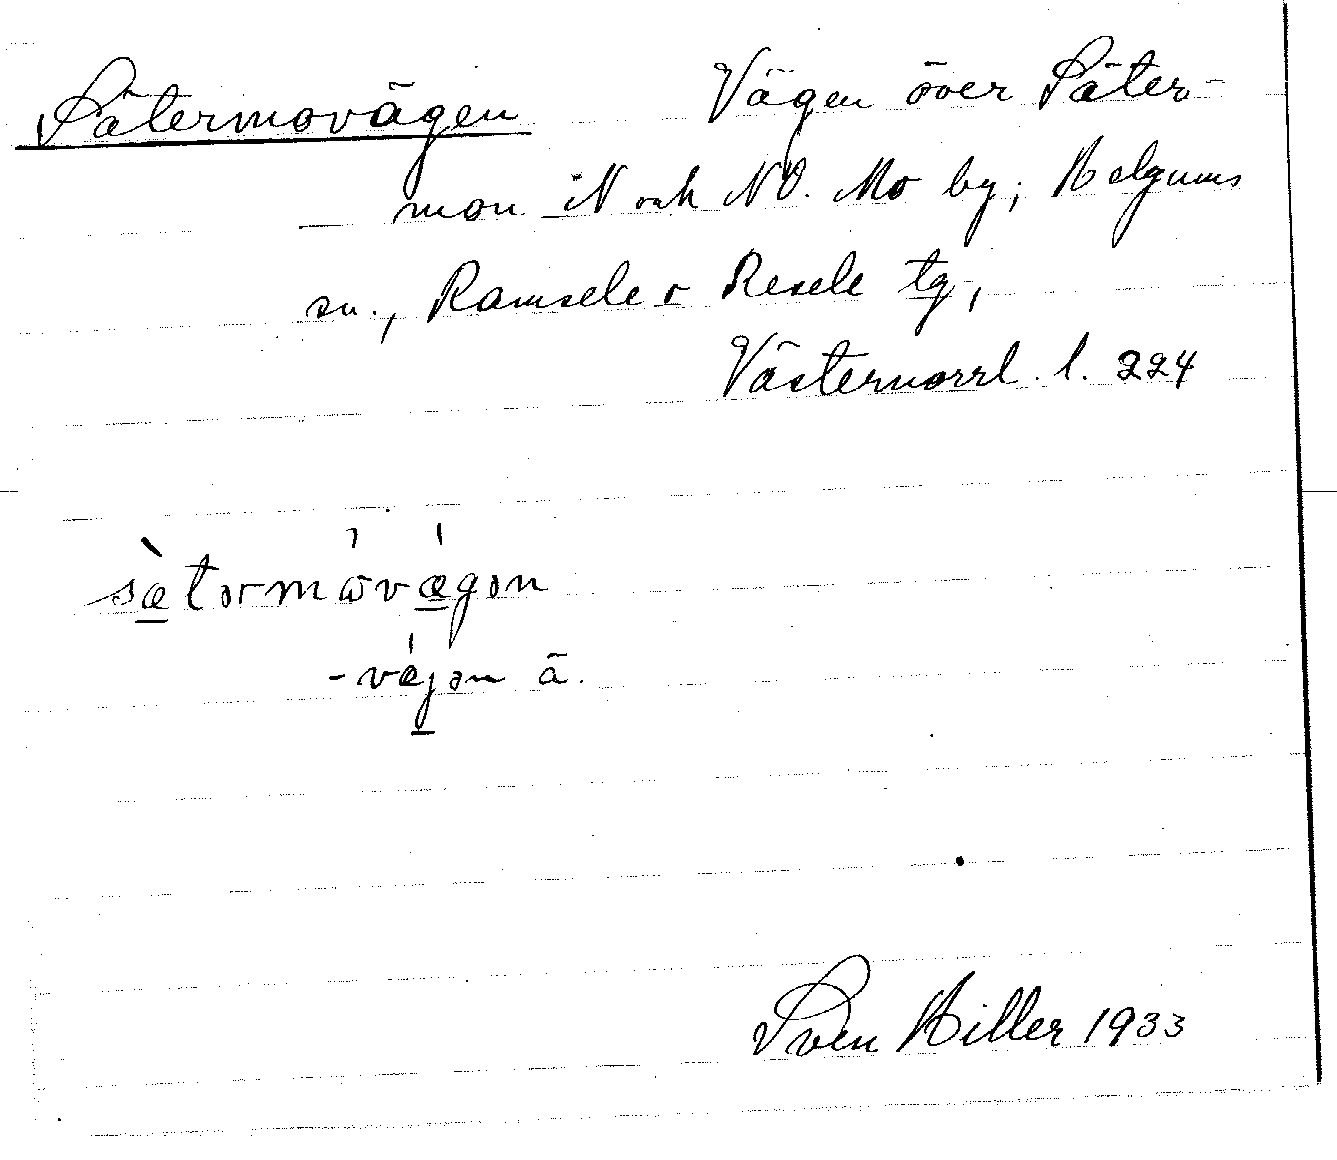 Sätermovägen
Vägen över Säter-
mon i N och NO. Mo by; Helgums
sn., Ramsele o Resele tg,
Västernorrl. l. 224
sæ̀tərmóvǽgən
-vǽjən ä.
Sven Hiller 1933